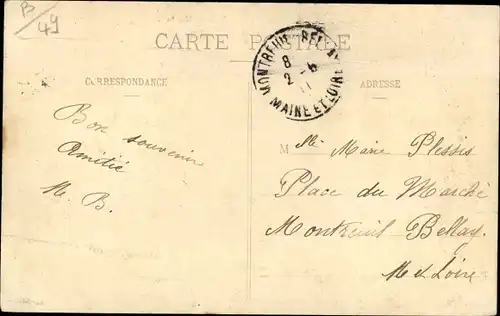 B/49
CARTE POSTALE
MONTREUIL-BELLAY
8
2 - 6
11
MAINE ET LOIRE
CORRESPONDANCE
ADRESSE
Bon souvenir
Amitié
M. B.
Mlle Marie Plessis
Place du Marché
Montreuil Bellay
M et Loire